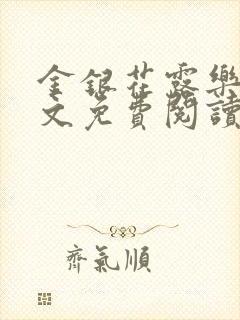 金銀花露樂
文免費閱讀
齊氣順